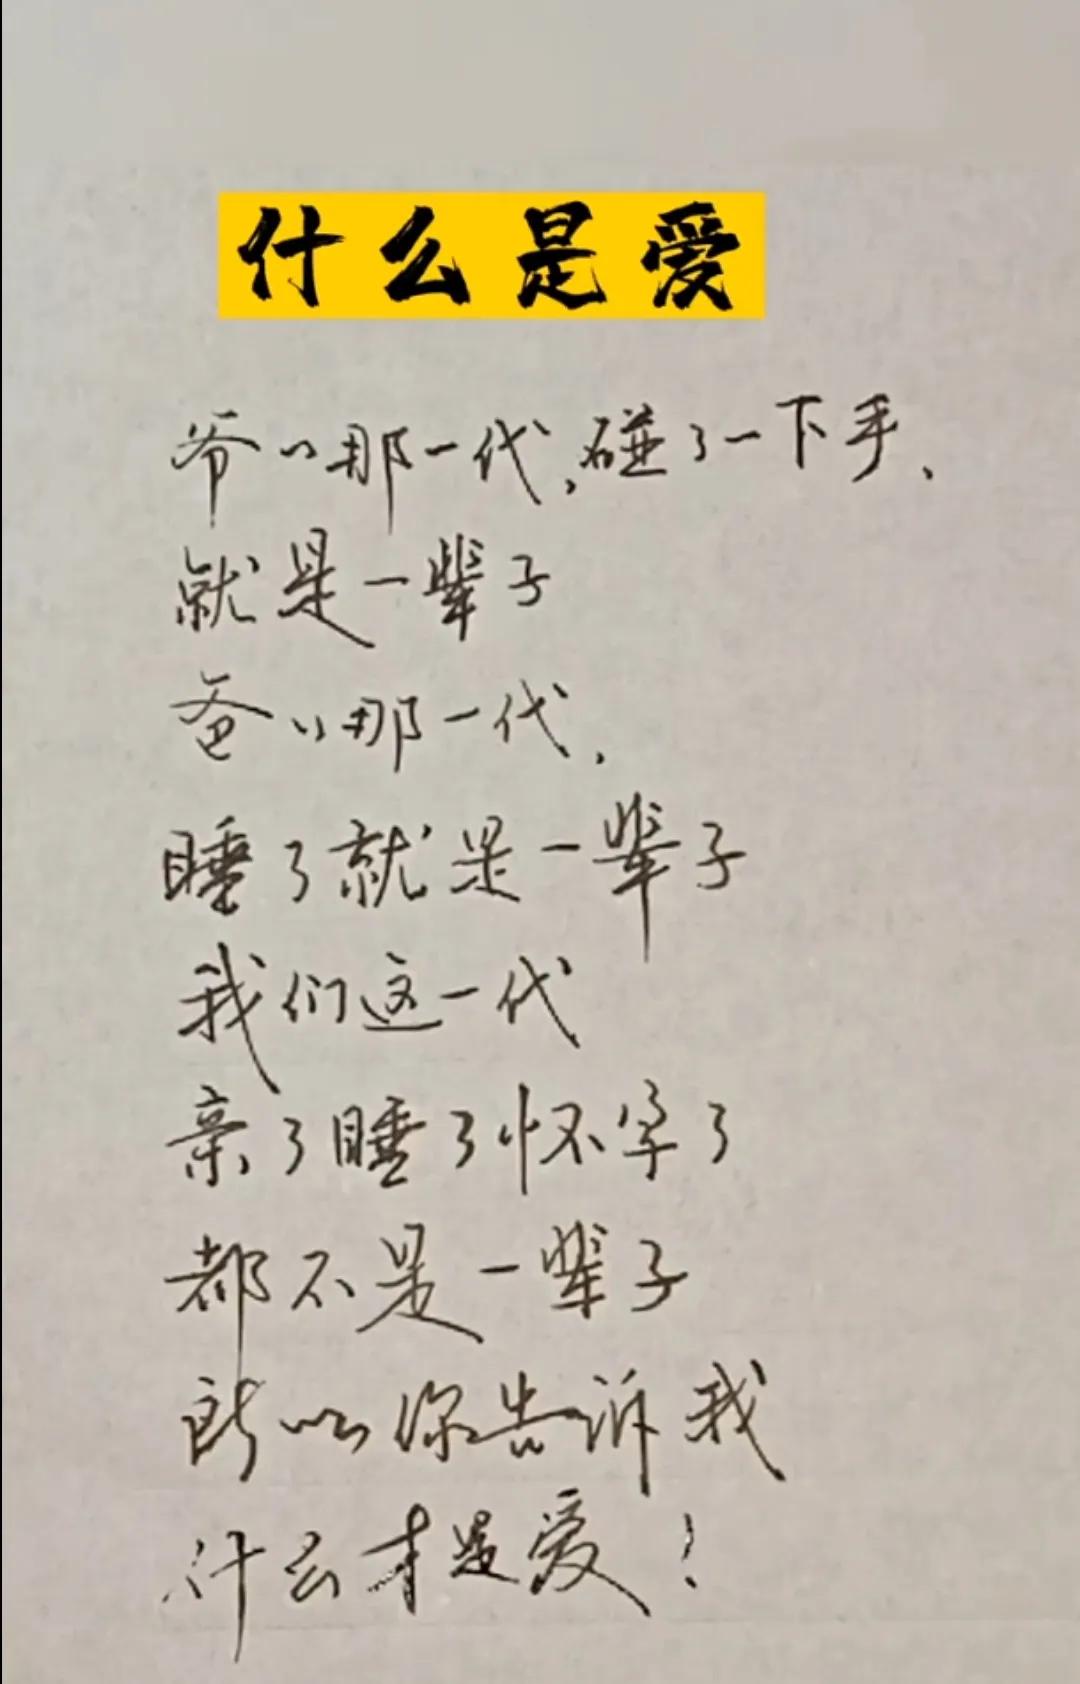 什么是爱
爷〃那一代,碰了一下手、
就是一辈子
爸〃那一代,
睡了就是一辈子
我们这一代
亲了睡了怀孕了
都不是一辈子
所以你告诉我
什么才是爱!